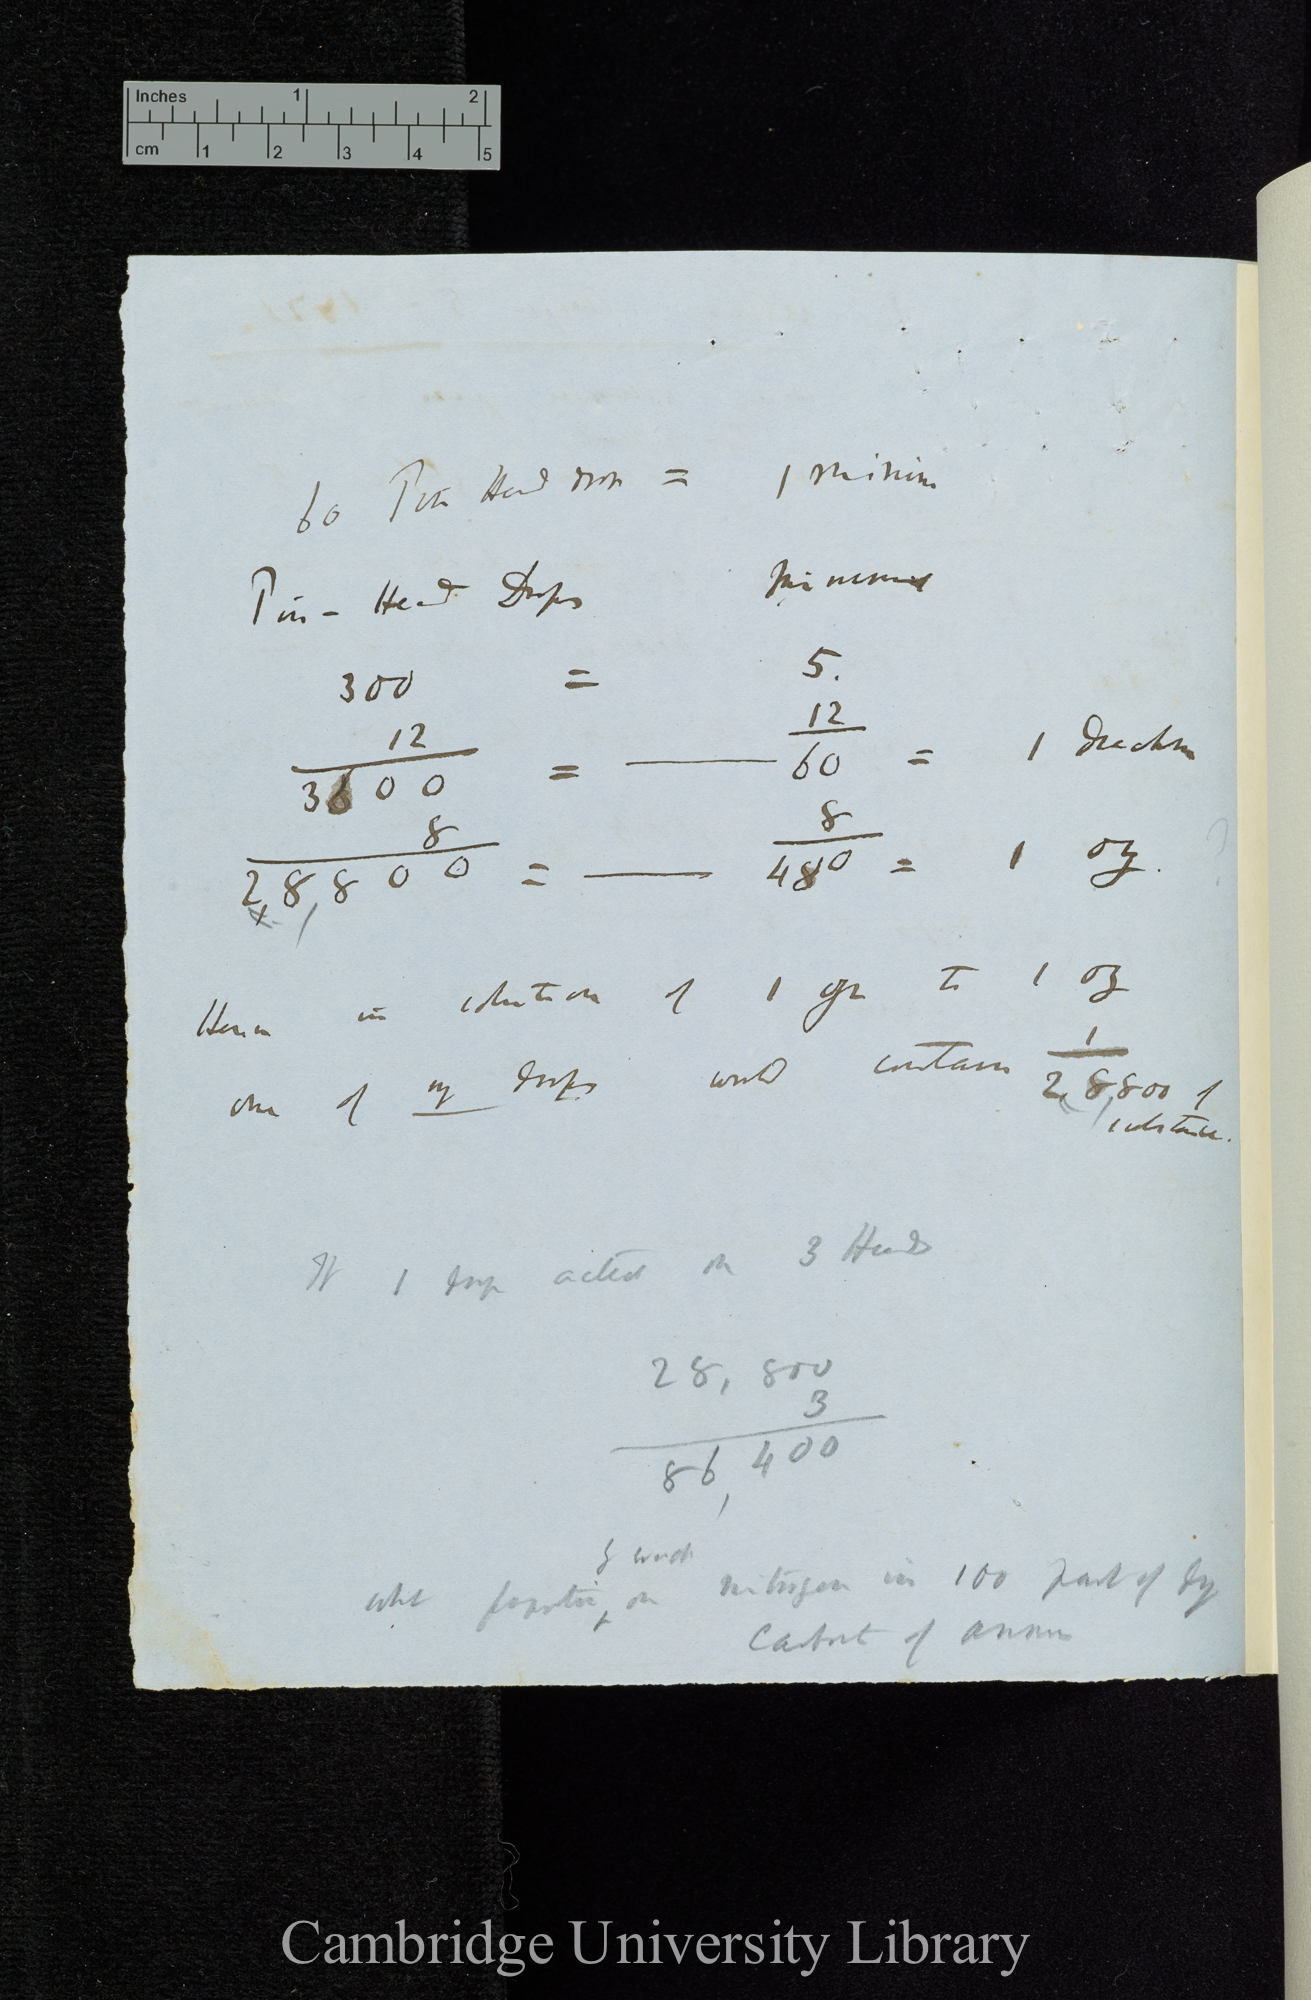 Inches 1 2
cm 1 2 3 4 5
60 Pin Head drops = 1 minim
Pin-Head Drops Minims
300 = 5.
12 12
3600 = — 60 = 1 Drachm
8 8
28,800 = — 480 = 1 oz.
Hence in solution of 1 gr to 1 oz
one of my drops would contain 1/28,800 of
substance.
If 1 drop acted on 3 Heads
28,800
3
86,400
nitrogen in 100 part of dry
Carbonate of ammon
Cambridge University Library